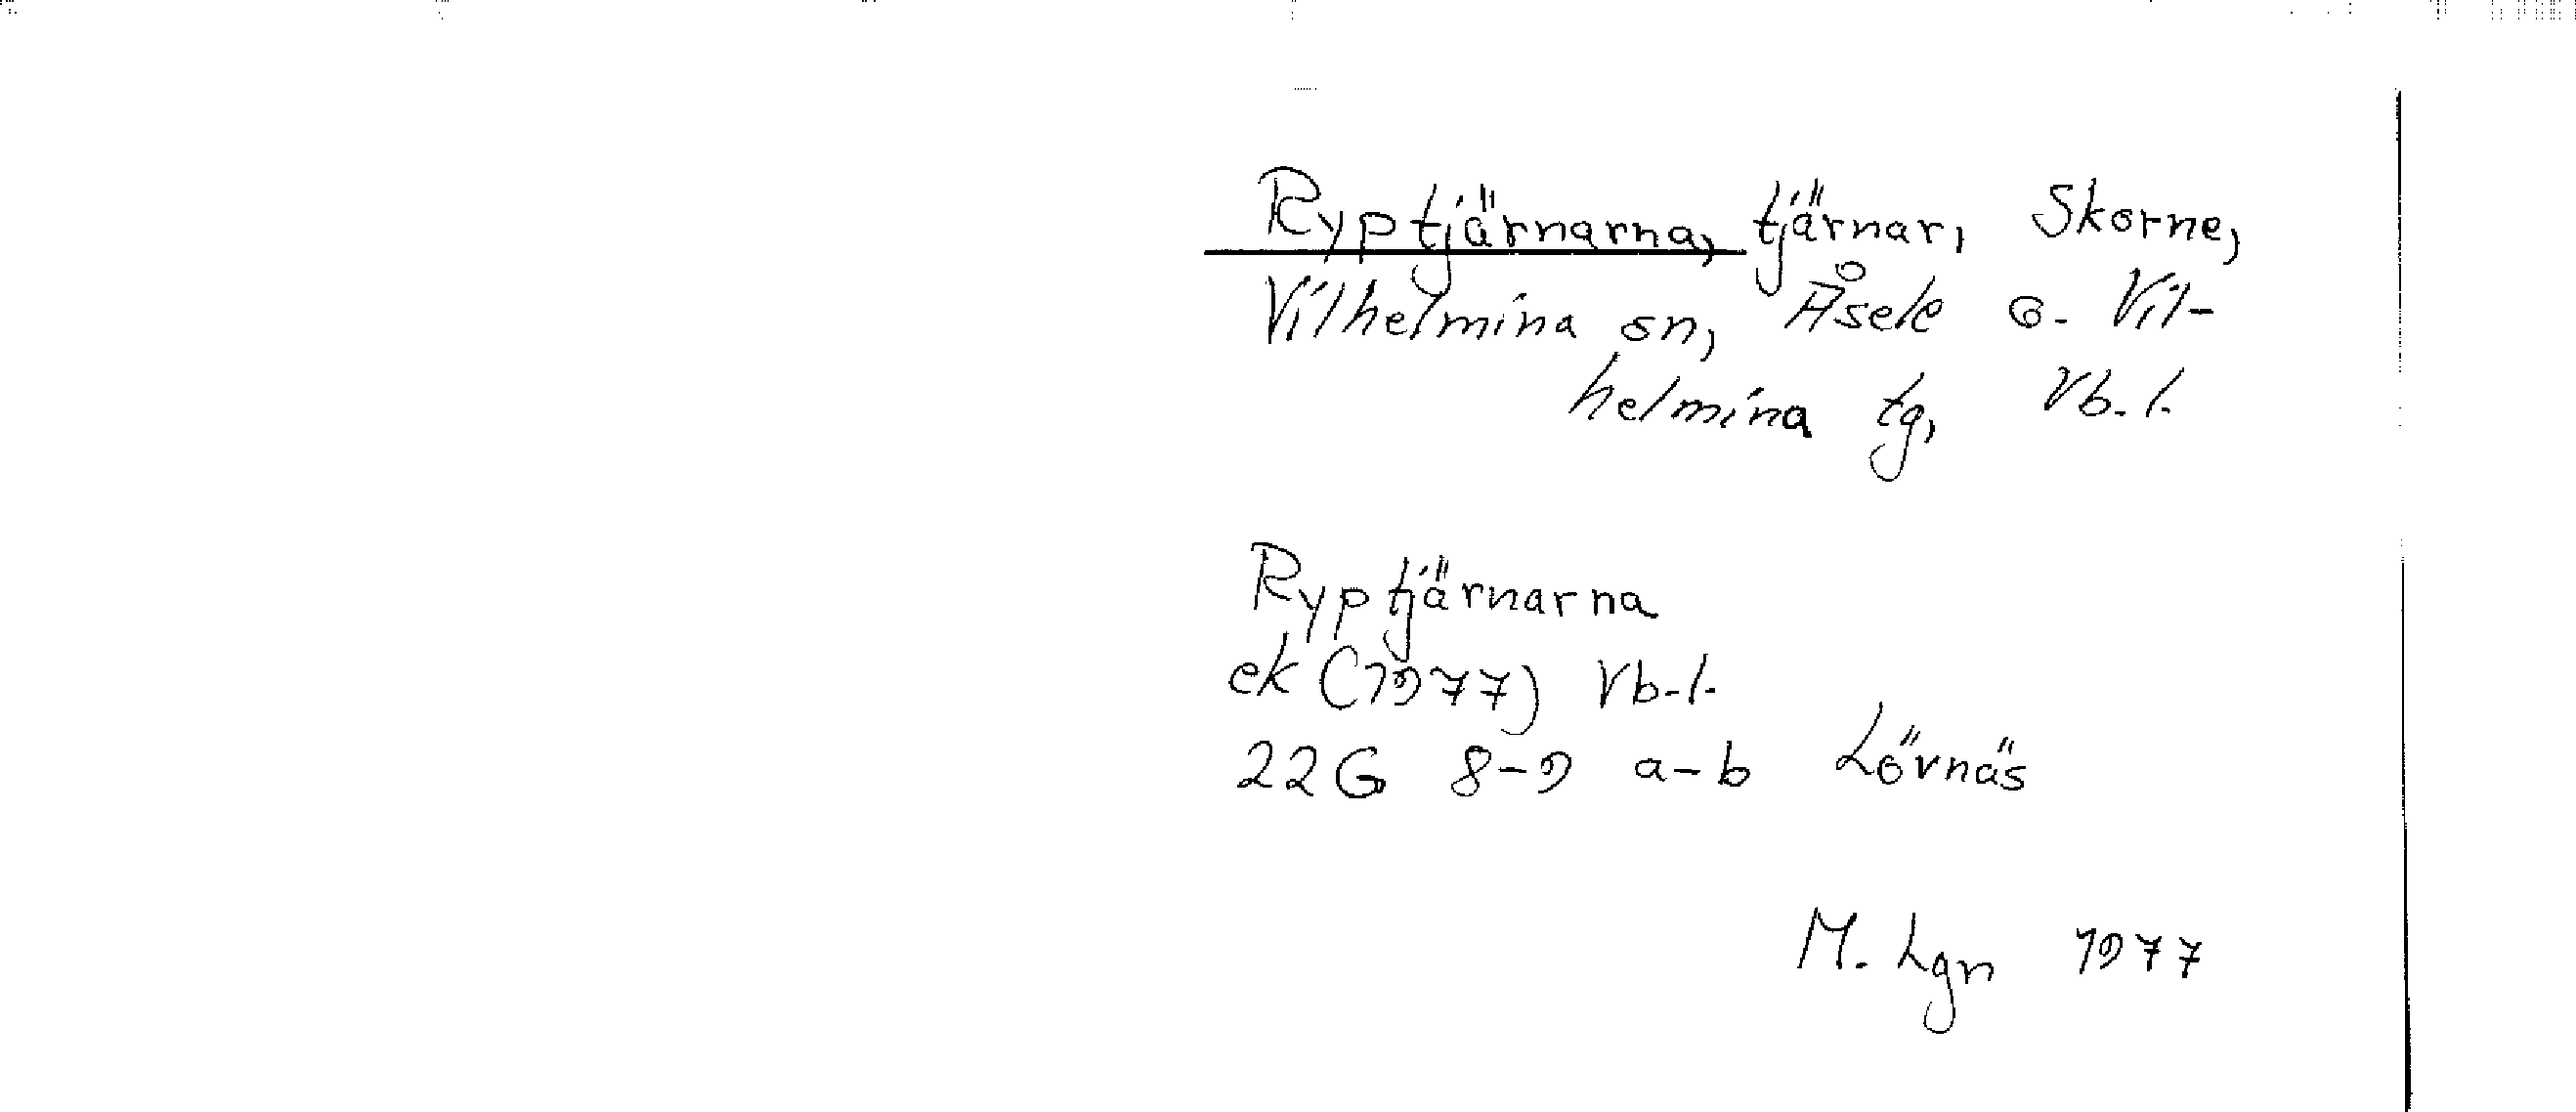 Ryptjärnarna, tjärnar, Skorne,
Vilhelmina sn, Åsele o. Vil-
helmina tg, Vb. l.
Ryptjärnarna
ek (1977) Vb. l.
22G 8-9 a-b Lövnäs
M. Lgn 1977